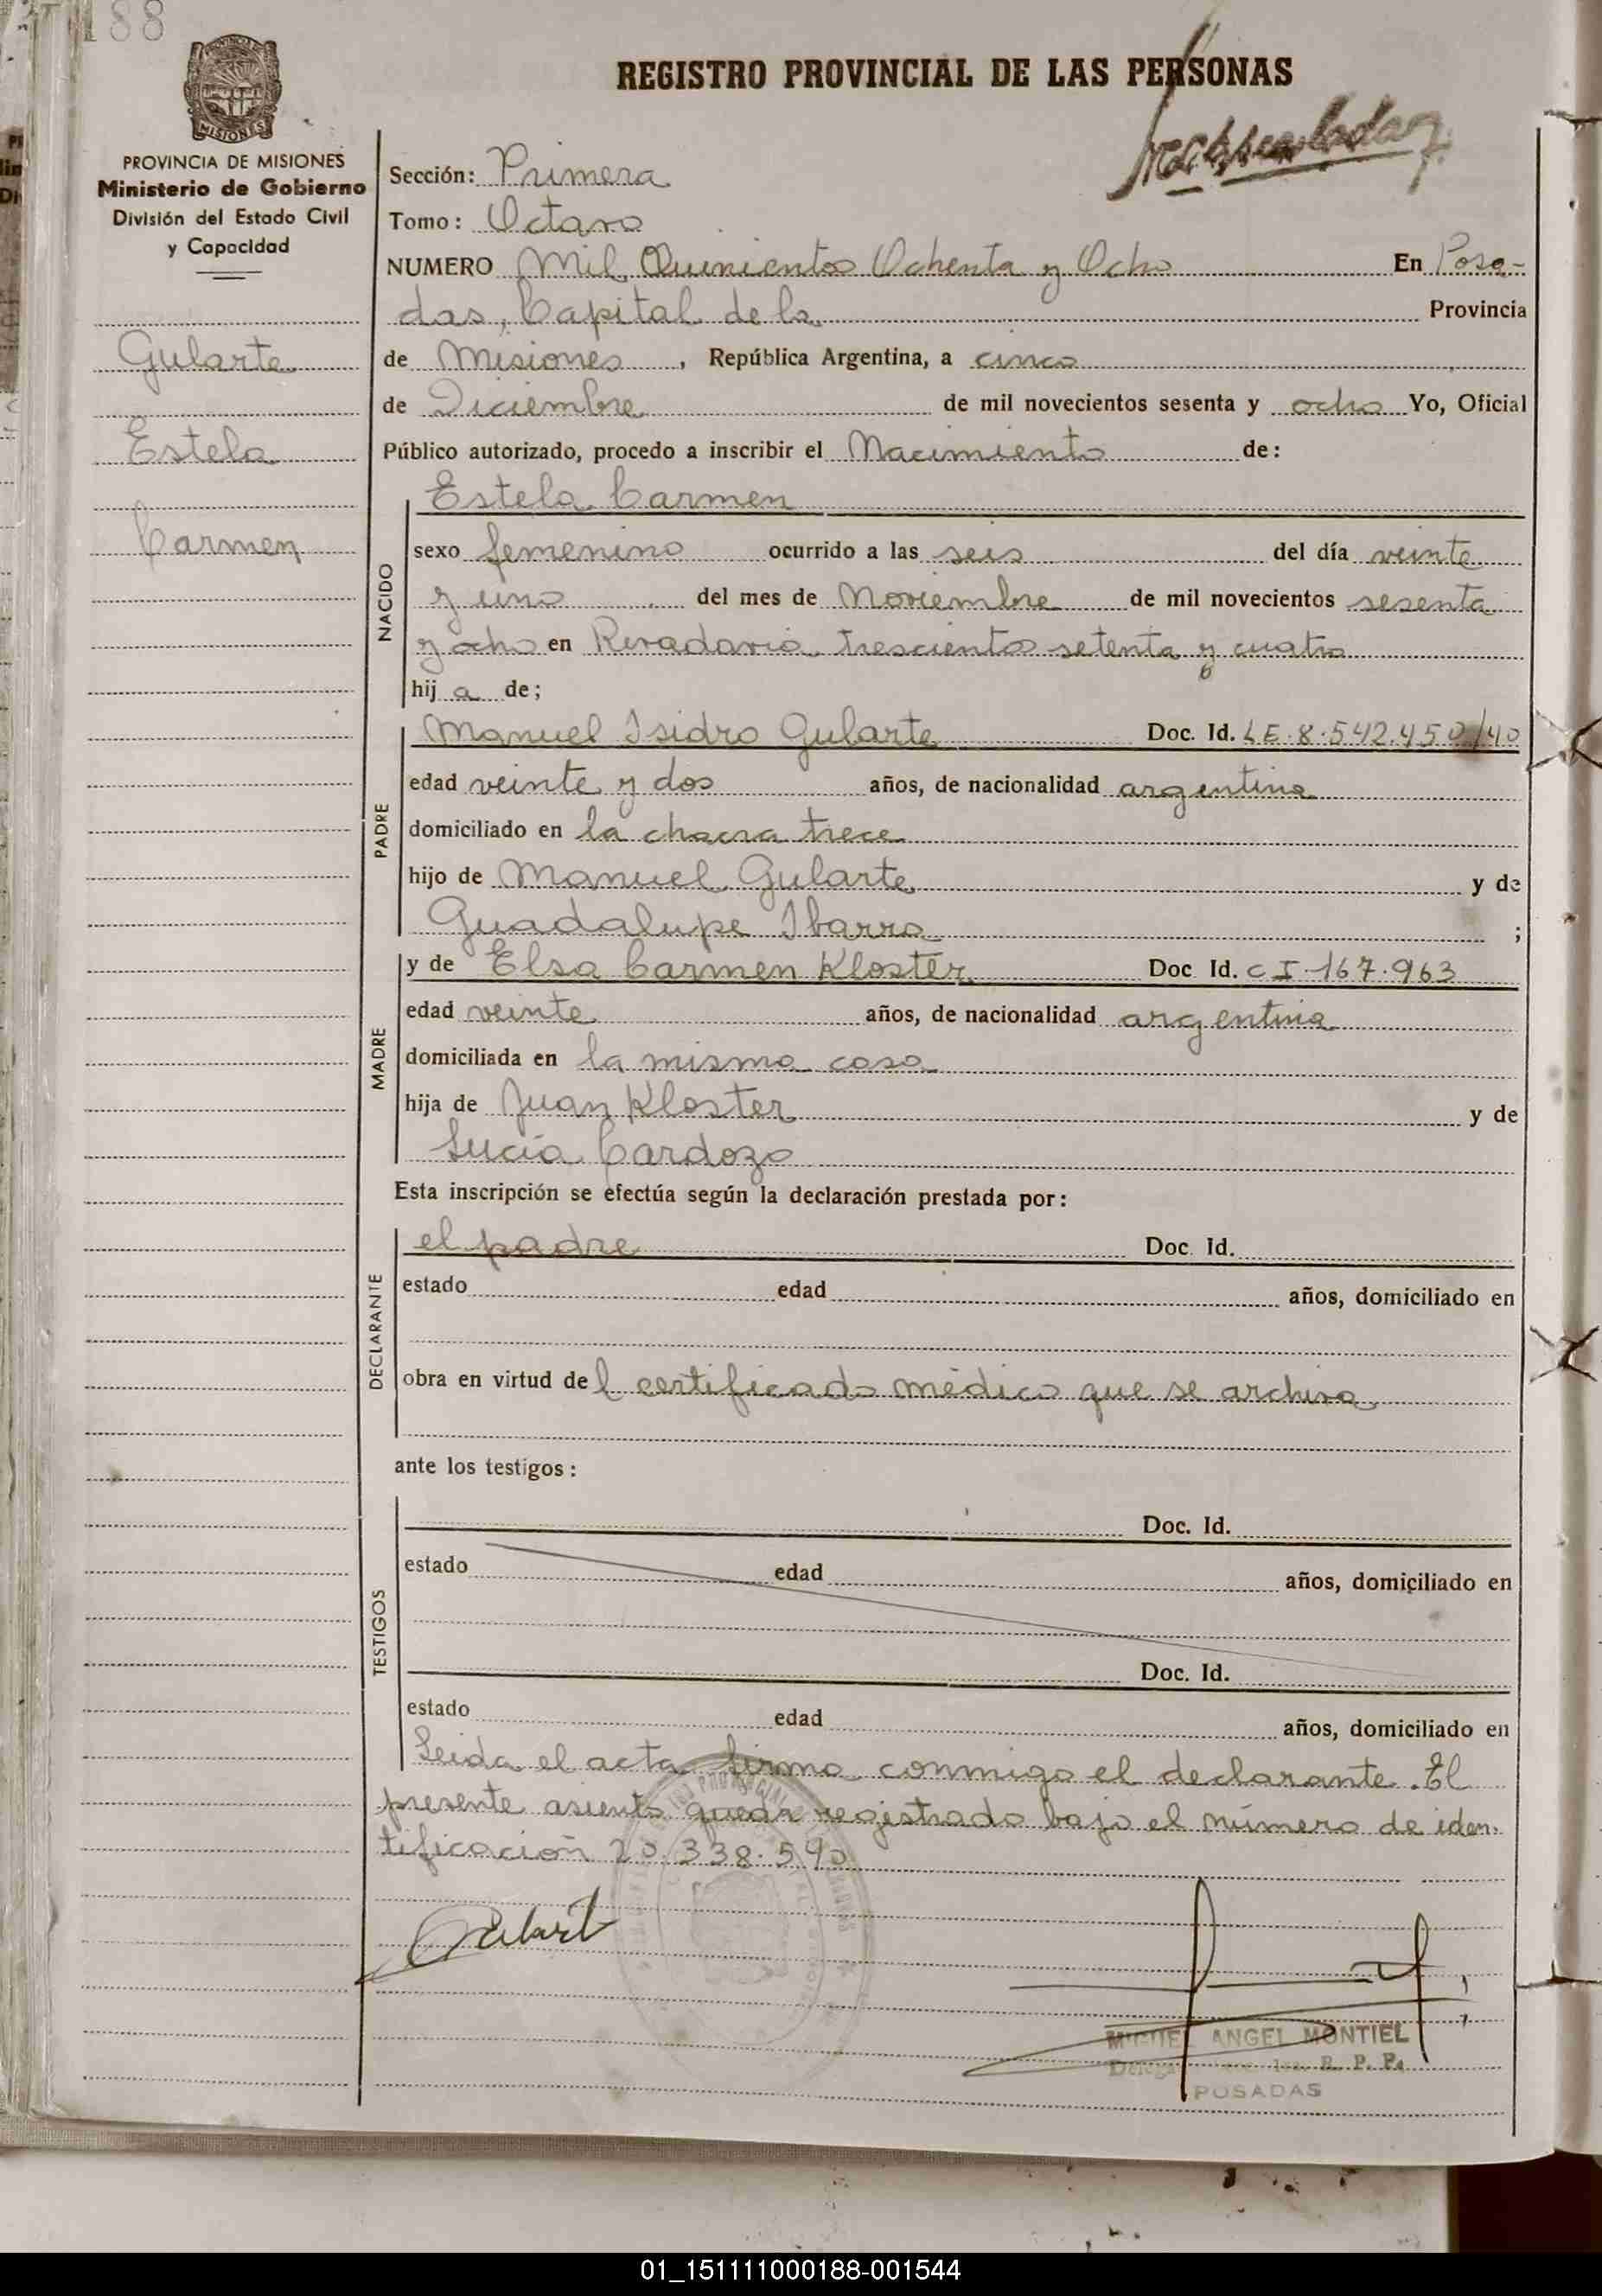 188
REGISTRO PROVINCIAL DE LAS PERSONAS
MISIONES
PROVINCIA DE MISIONES
Ministerio de Gobierno
División del Estado Civil
y Capacidad
Gularte
Estela
Carmen
Sección: Primera
Tomo: Octavo
NUMERO Mil Quinientos Ochenta y Ocho En Posa-
das, Capital de la Provincia
de Misiones, República Argentina, a cinco
de Diciembre de mil novecientos sesenta y ocho Yo, Oficial
Público autorizado, procedo a inscribir el Nacimiento de:
Estela Carmen
NACIDO
sexo femenino ocurrido a las seis del día veinte
y uno del mes de Noviembre de mil novecientos sesenta
y ocho en Rivadavia trescientos setenta y cuatro
hij a de;
PADRE
Manuel Isidro Gularte Doc. Id. LE.8.542.450/40
edad veinte y dos años, de nacionalidad argentina
domiciliado en la chacra trece
hijo de Manuel Gularte y de
Guadalupe Ibarra ;
MADRE
y de Elsa Carmen Kloster Doc Id. CI.167.963
edad veinte años, de nacionalidad argentina
domiciliada en la misma casa
hija de Juan Kloster y de
Lucía Cardozo
Esta inscripción se efectúa según la declaración prestada por:
DECLARANTE
el padre Doc. Id.
estado edad años, domiciliado en
obra en virtud del certificado médico que se archiva
ante los testigos:
TESTIGOS
Doc. Id.
estado edad años, domiciliado en
Doc. Id.
estado edad años, domiciliado en
Leida el acta firma conmigo el declarante. El
presente asiento queda registrado bajo el número de iden-
tificación 20.338.590
Gulart
MIGUEL ANGEL MONTIEL
R. P. P.
POSADAS
01_151111000188-001544